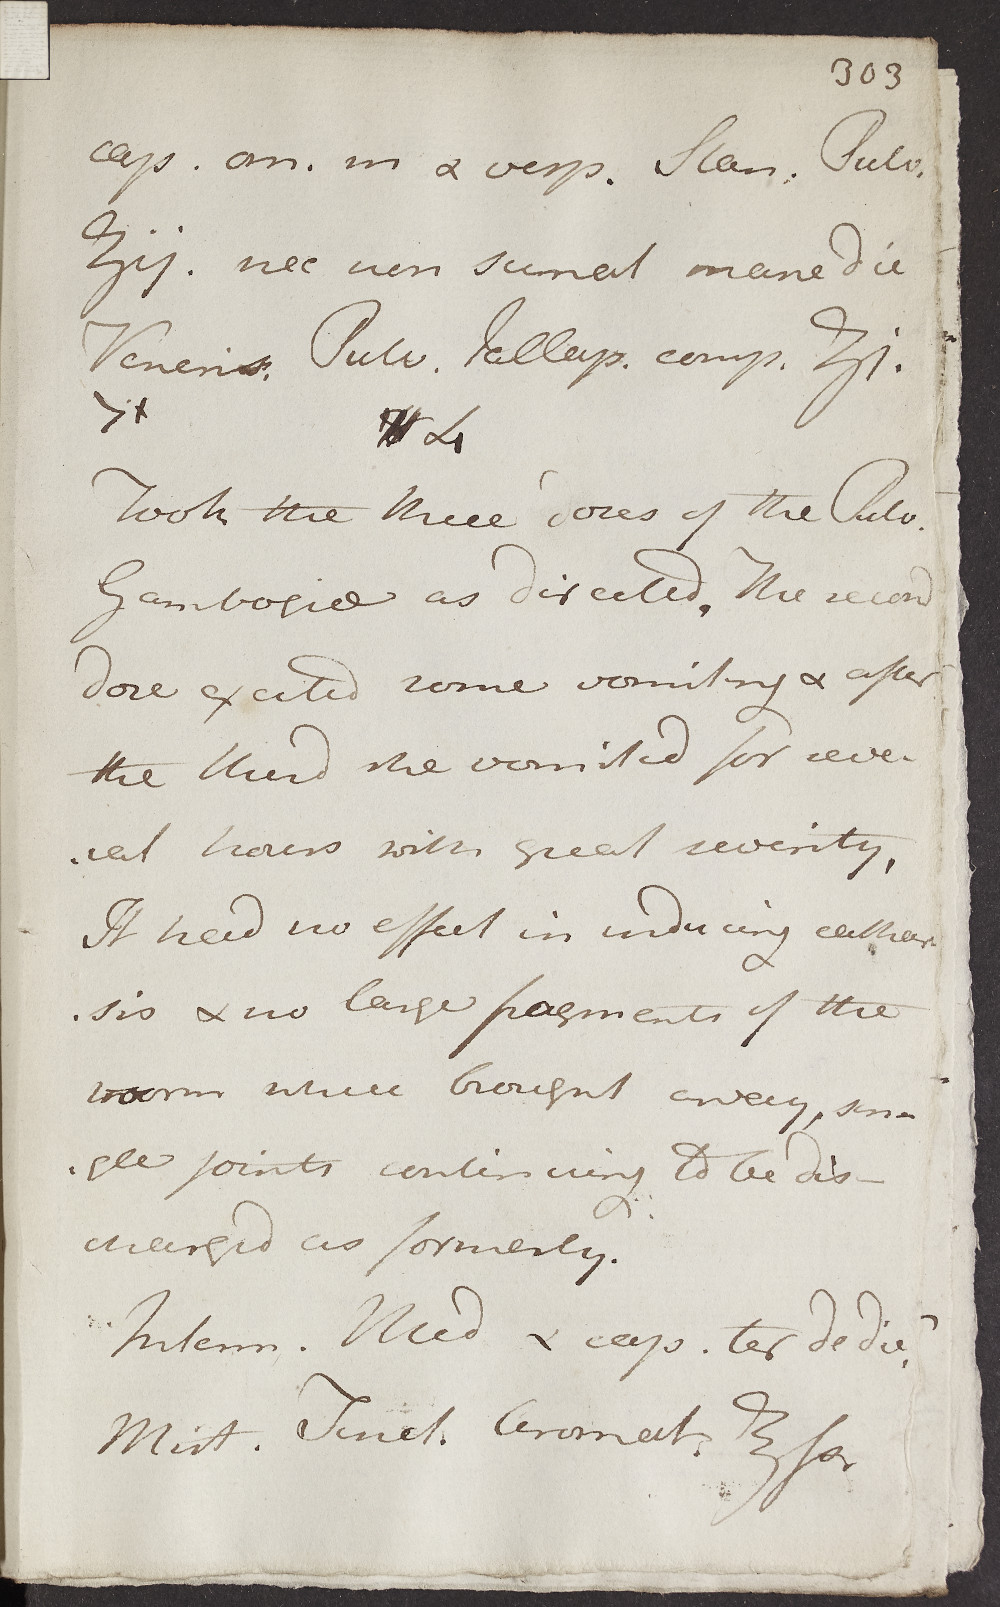 303
cap. om. m & vesp. Stan. Pulv.
ʒij. nec non sumat mane die
Veneris. Pulv. Jallap. comp. ʒj.
7
Took the three doses of the Pulv.
Gambogiæ as directed. The second
dose excited some vomiting & after
the third she vomited for seve-
-ral hours with great severity,
It had no effect in inducing cathar-
-sis & no large fragments of the
worm were brought away, sin-
-gle joints continuing to be dis-
charged as formerly.
Interm. Med & cap. ter de die
Mist. Tinct. Aromat. ʒss